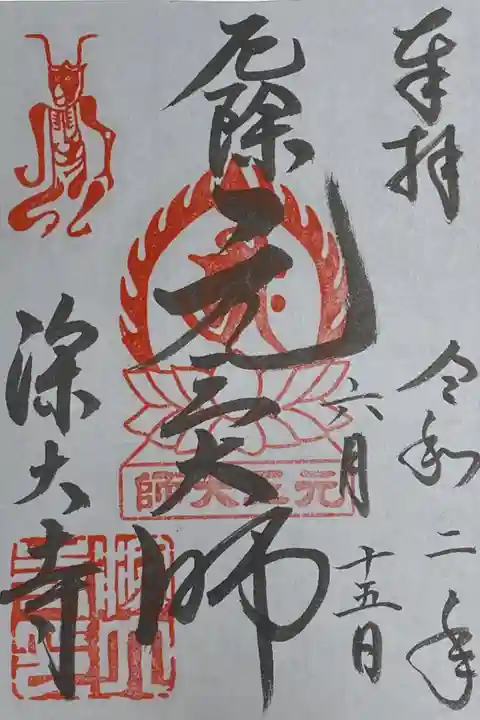 奉拝
令和二年
六月
十五日
厄除
元三大師
元三大師
深大寺